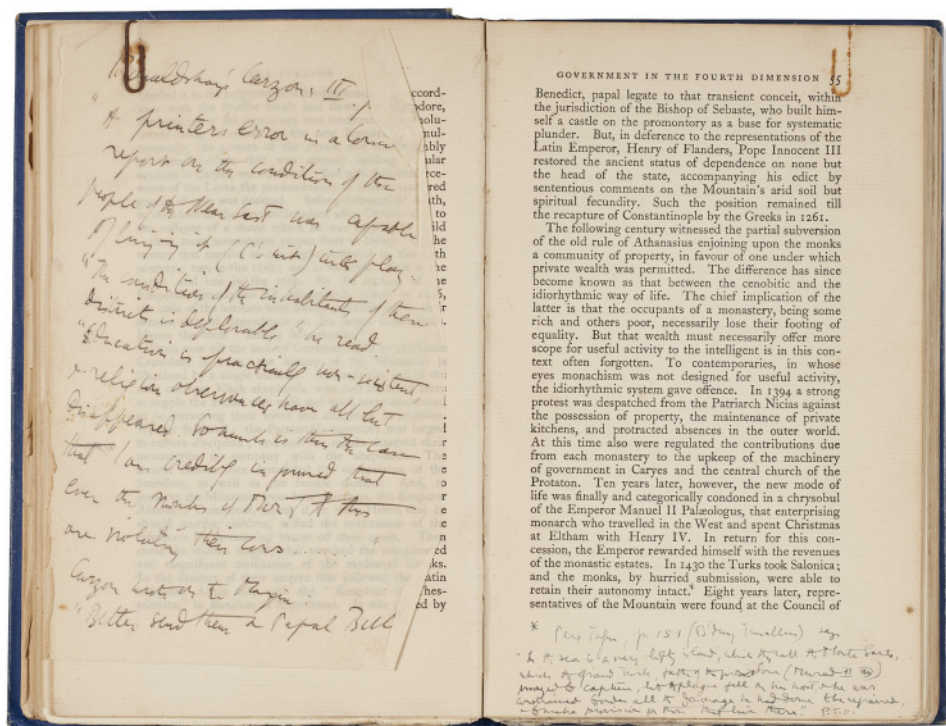 Ronaldshay's Curzon, III. p.
"A printer's error in a
report on the condition of the
people of the Near East was capable
of
"The condition of the inhabitants of these
districts is deplorable" he read.
"Education is practically non-existent
& religious observances have all but
disappeared. So much is this the case
that I am credibly informed that
even the Monks of Mount Athos
are violating their cows . . . . . .
Curzon wrote on the Margin.
"Better send them a Papal Bull
ccord-
dore,
olu-
mul-
ably
ular
rce-
red
ath,
to
ild
he
th
ne
ed
ks.
atin
hes-
ed by
GOVERNMENT IN THE FOURTH DIMENSION 55
Benedict, papal legate to that transient conceit, within
the jurisdiction of the Bishop of Sebaste, who built him-
self a castle on the promontory as a base for systematic
plunder. But, in deference to the representations of the
Latin Emperor, Henry of Flanders, Pope Innocent III
restored the ancient status of dependence on none but
the head of the state, accompanying his edict by
sententious comments on the Mountain's arid soil but
spiritual fecundity. Such the position remained till
the recapture of Constantinople by the Greeks in 1261.
The following century witnessed the partial subversion
of the old rule of Athanasius enjoining upon the monks
a community of property, in favour of one under which
private wealth was permitted. The difference has since
become known as that between the cenobitic and the
idiorhythmic way of life. The chief implication of the
latter is that the occupants of a monastery, being some
rich and others poor, necessarily lose their footing of
equality. But that wealth must necessarily offer more
scope for useful activity to the intelligent is in this con-
text often forgotten. To contemporaries, in whose
eyes monachism was not designed for useful activity,
the idiorhythmic system gave offence. In 1394 a strong
protest was despatched from the Patriarch Nicias against
the possession of property, the maintenance of private
kitchens, and protracted absences in the outer world.
At this time also were regulated the contributions due
from each monastery to the upkeep of the machinery
of government in Caryes and the central church of the
Protaton. Ten years later, however, the new mode of
life was finally and categorically condoned in a chrysobul
of the Emperor Manuel II Palæologus, that enterprising
monarch who travelled in the West and spent Christmas
at Eltham with Henry IV. In return for this con-
cession, the Emperor rewarded himself with the revenues
of the monastic estates. In 1430 the Turks took Salonica;
and the monks, by hurried submission, were able to
retain their autonomy intact.* Eight years later, repre-
sentatives of the Mountain were found at the Council of
* Pero Tafur, p. 151 (B'way Travellers) says
"In the sea is a very lofty island, which they call the Monte Santo,
which the Grand Turk, father of the present one (Murad II)
to capture, but a plague fell on his host & he was
constrained all the damage he had done to be repaired,
& make provision for those that live there." P.T.O.